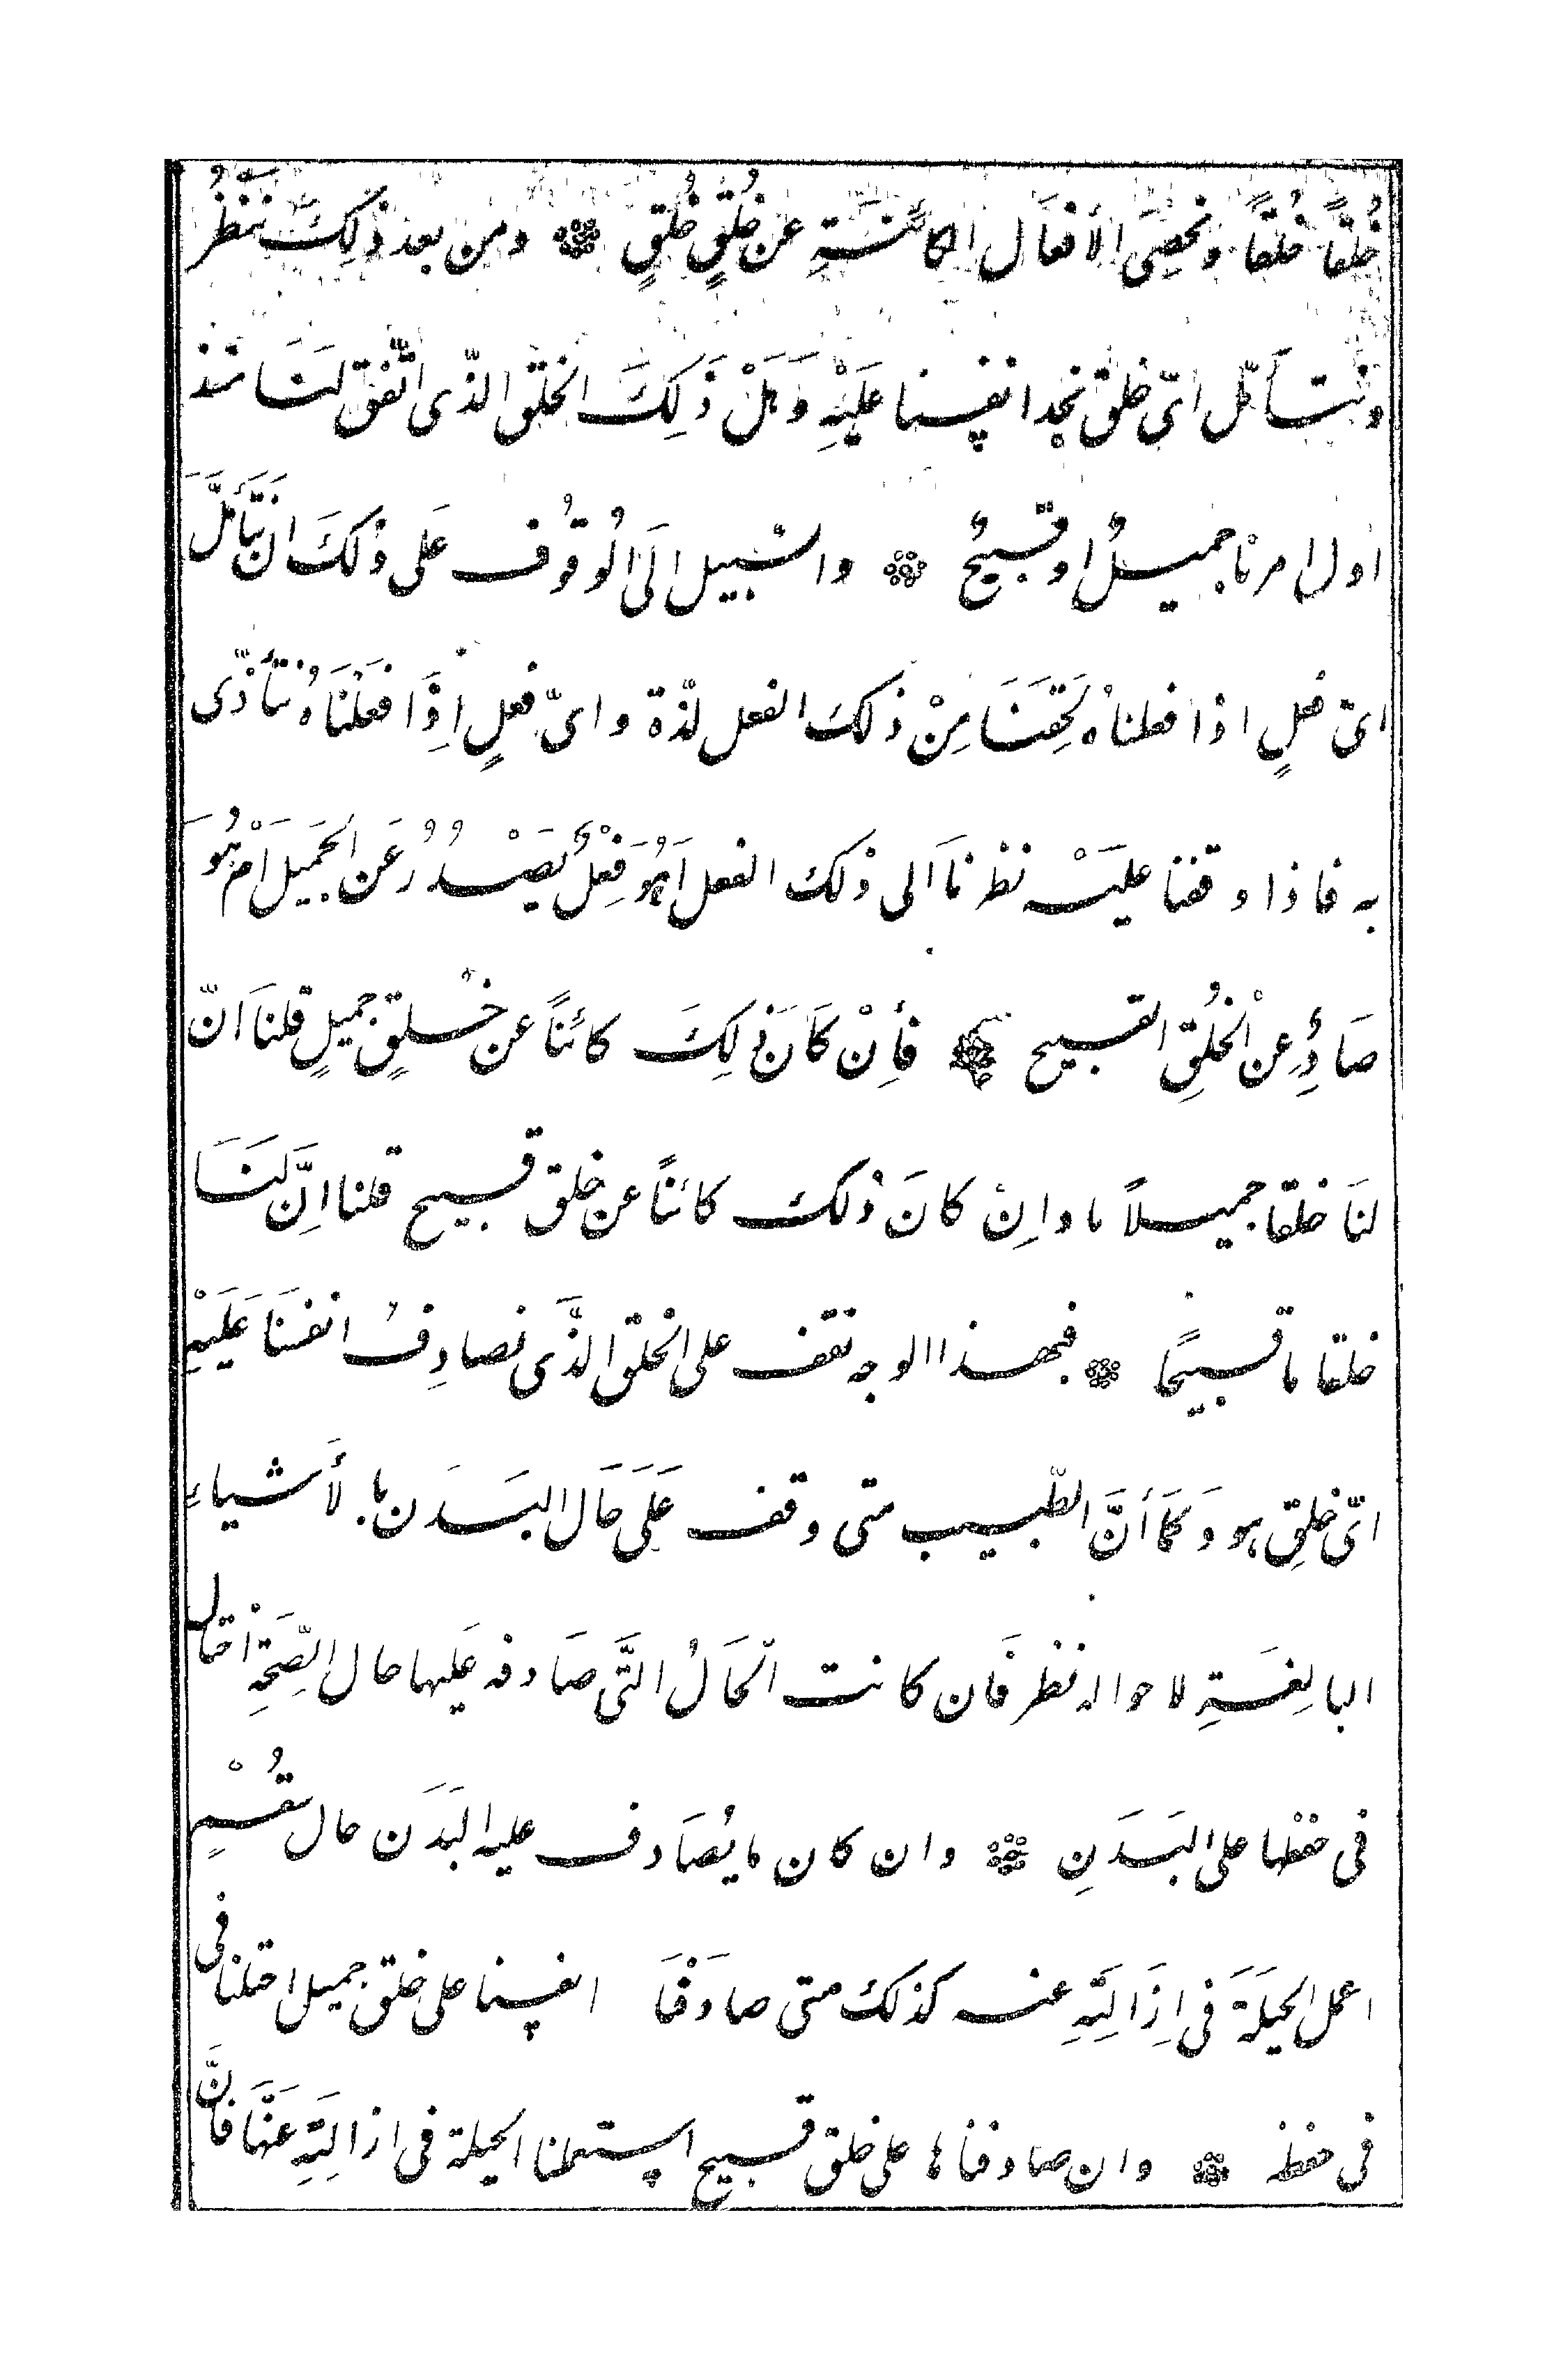 خُلقًا خُلقًا وَنحصِىَ الأفعَال الكَائنَةِ عن خُلُقٍ خُلقٍ ۞ ومن بعد ذٰلِكَ نَنظُرُ
ونتأمّل اىّ خلقٍ نجد انفسنا عَلَيْهِ وَهَلْ ذَٰلِكَ الخلُق الذّى اتّفق لَنَا مُنذ
اول امرنا جميلٌ او قبيحٌ ۞ والسّبيل اِلَى الُوقُوف عَلى ذٰلكَ ان نَتَأمَّلَ
اىّ فعلٍ اذا فعلناهُ لَحِقَنَا مِنْ ذٰلكَ الفعل لذّة واىّ فعلٍ اِذَا فعَلْنَاهُ نتأذّى
به فاذا وقفنا عليَْه نظرنَا اَلى ذٰلكَ الفعل اَهُوَ فِعْلٌ يَصْدُرُ عَن الجَميَل اَمْ هُوَ
صَادِرٌ عِنْ الْخُلُقِ القبيح ۞ فأِنْ كَانَ ذٰلِكَ كائنًا عن خُلقٍ جميلٍ قلنَا انّ
لنَا خلقًا جميلًا ما واِنْ كانَ ذٰلك كائنًا عن خلق قبيح قلنا اِنَّ لَنَا
خلقًا ما قبيحًا ۞ فبهذا الوجه نقف على الخلق الذَّى نصادِفُ انفسَنَا عَلَيْهِ
اىّ خلقٍ هو وَكمَا أنَّ الطّبيب متى وقف عَلَى حَال البَدَن بالأَشياءِ
البالِغَةِ لاحواله نظر فَان كانت الْحَالُ التَّى صَادفه عَليها حال الصِّحَةِ اْحتال
فى حفْظها على البَدَنِ ۞ وان كان ما يُصَادف عليه البَدَن حال سُقْمٍ
اعمل الحيَلَةَ فى اِزَالَتِهِ عنه كذٰلك متى صادَفْنَا انفسنا على خلق جميل احتلنا فى
فى حفظه ۞ وان صادفناها على خلق قبيح استعملنا الحيلة فى ازالَتِهِ عَنهَا فانَّ